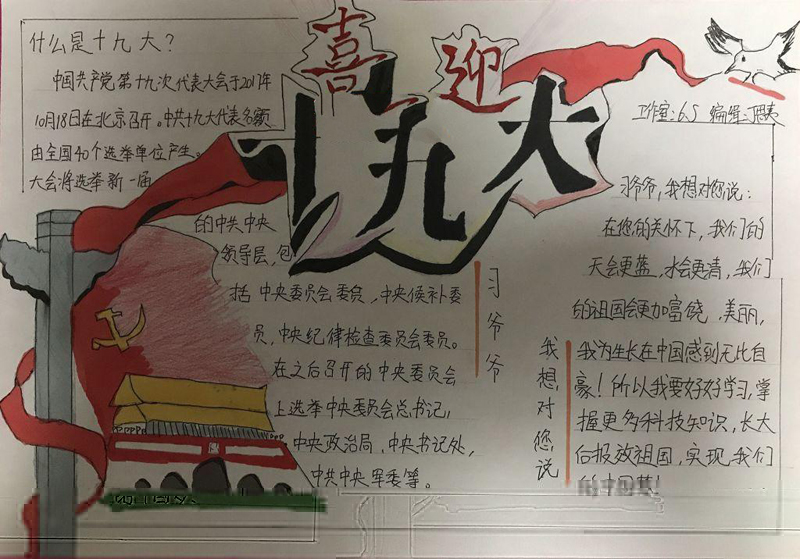 喜迎
十九大
什么是十九大？
中国共产党第十九次代表大会于2017年
10月18日在北京召开。中共十九大代表名额
由全国40个选举单位产生。
大会将选举新一届
的中共中央
领导层，包
括中央委员会委员，中央候补委
员，中央纪律检查委员会委员。
在之后召开的中央委员会
上选举中央委员会总书记，
中央政治局，中央书记处，
中共中央军委等。
习爷爷
我想对您说
工作室：6.5 编辑：
习爷爷，我想对您说：
在您的关怀下，我们的
天会更蓝，水会更清，我们
的祖国会更加富饶，美丽，
我为生长在中国感到无比自
豪！所以我要好好学习，掌
握更多科技知识，长大
后报效祖国，实现我们
的中国梦！